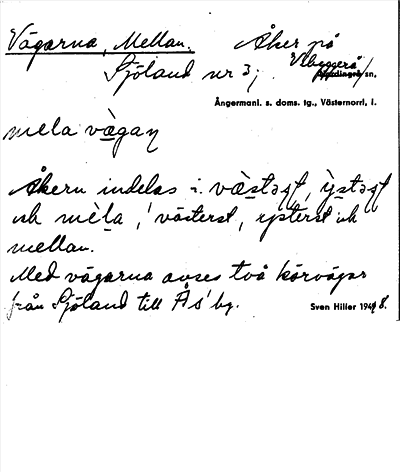 Vägarna, Mellan. Åker på
Sjöland nr 3; Vibyggerå sn,
Ångermanl. s. doms. tg., Västernorrl. l.
mela vægan
Åkern indelas i væstast, ystast
och mela, ' västerst, ysterst och
mellan.
Med vägarna avses två körvägar
från Sjöland till Ås' by.
Sven Hiller 1948.